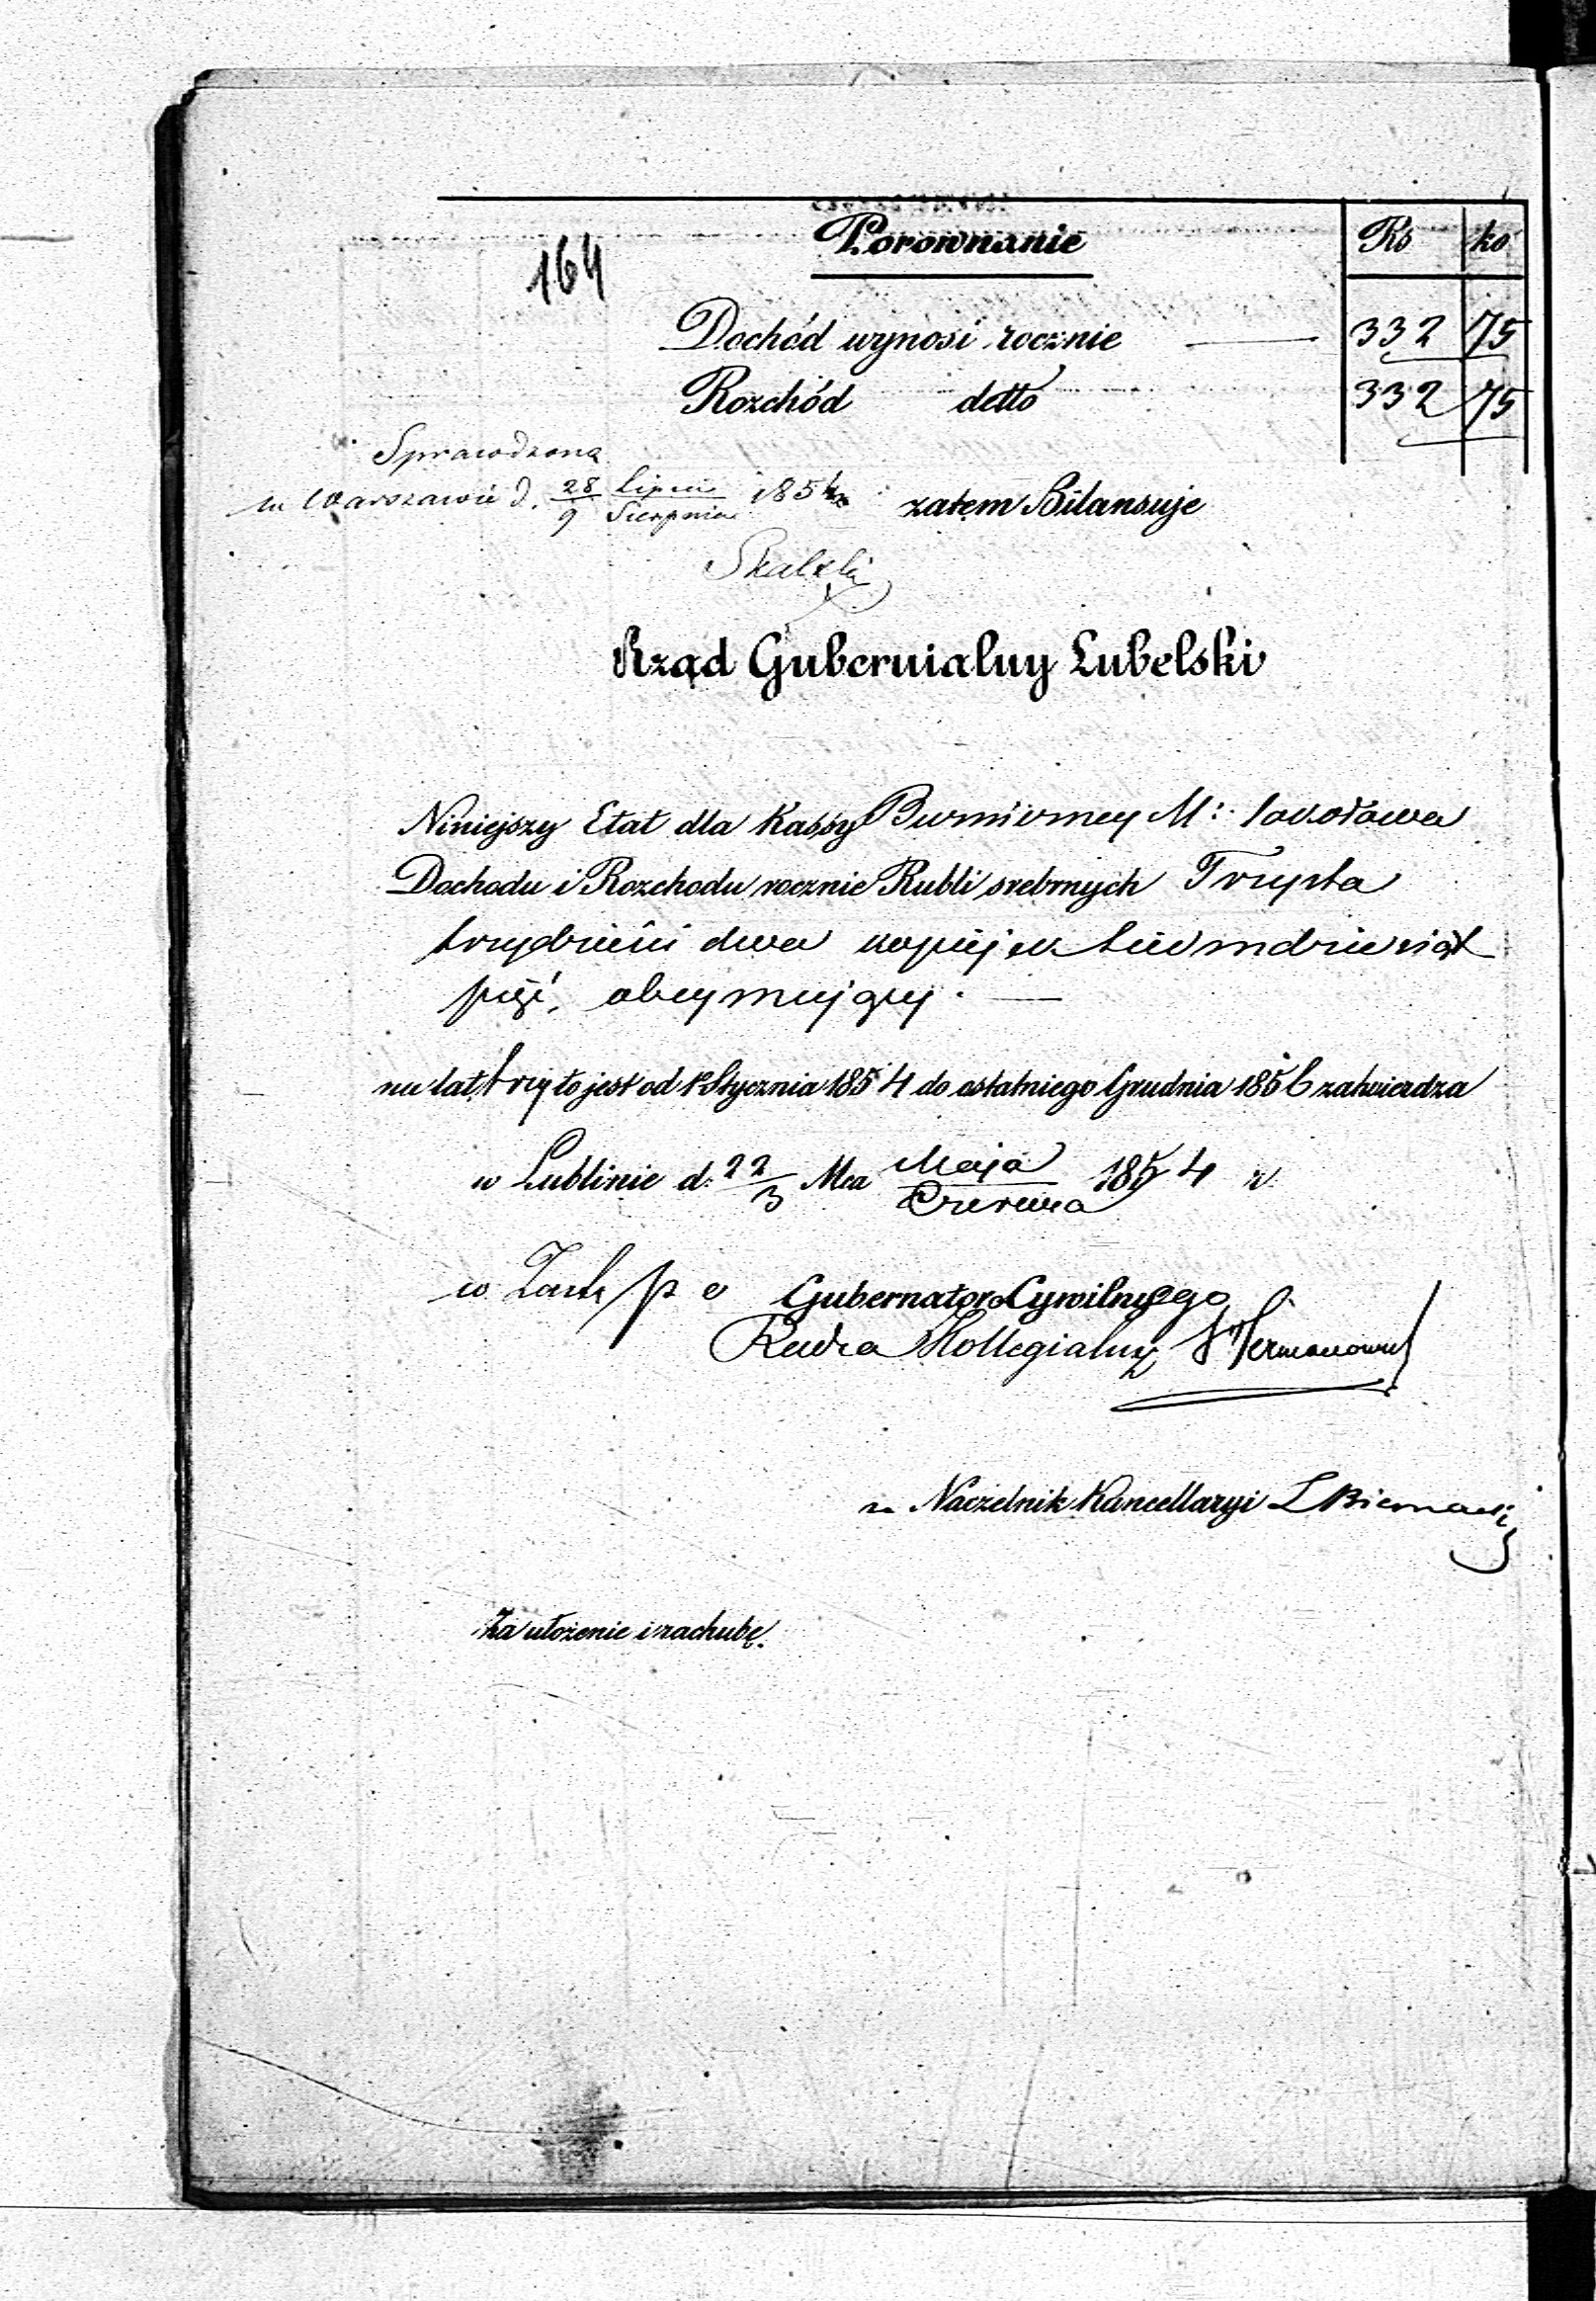 164
Porownanie Rs ko
Dochód wynosi rocznie 332 75
Rozchód detto 332 75
Sprawdzona
w Warszawie d. 28/9 Lipca/Sierpnia 1854 zatem Bilansuje
Rząd Gubernialny Lubelski
Niniejszy Etat dla Kassy M:
Dochodu i Rozchodu rocznie Rubli srebrnych Trzysta
trzydzieści dwa kopiejek siedmdziesiąt
pięć, obeymujący.
na lat trzy to jest od 1º Stycznia 1854 do ostatniego Grudnia 1856 zatwierdza
w Lublinie d. 22/3 Mca Maja/Czerwca 1854 r.
w Zast. p o Gubernatora Cywilnego
Radca Kollegialny
Naczelnik Kancellaryi
Za ułożenie i rachubę.